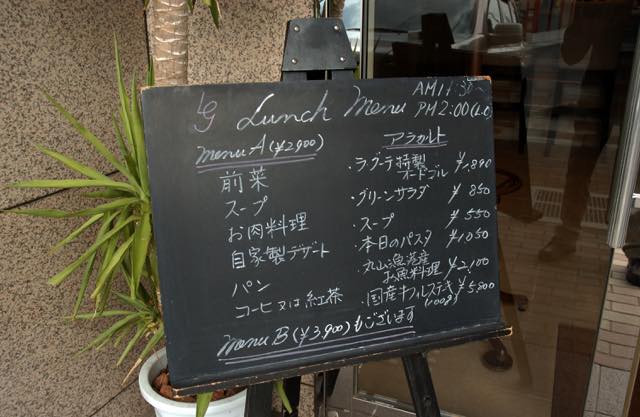 LG Lunch Menu
AM11:30〜
PM2:00(L.O)
Menu A (¥2,900)
前菜
スープ
お肉料理
自家製デザート
パン
コーヒー又は紅茶
アラカルト
・ラグーテ特製オードブル ¥1,890
・グリーンサラダ ¥850
・スープ ¥550
・本日のパスタ ¥1,050
・丸山漁港産お魚料理 ¥2,100
・国産牛フィレステーキ(100g) ¥5,800
Menu B (¥3,900) もございます